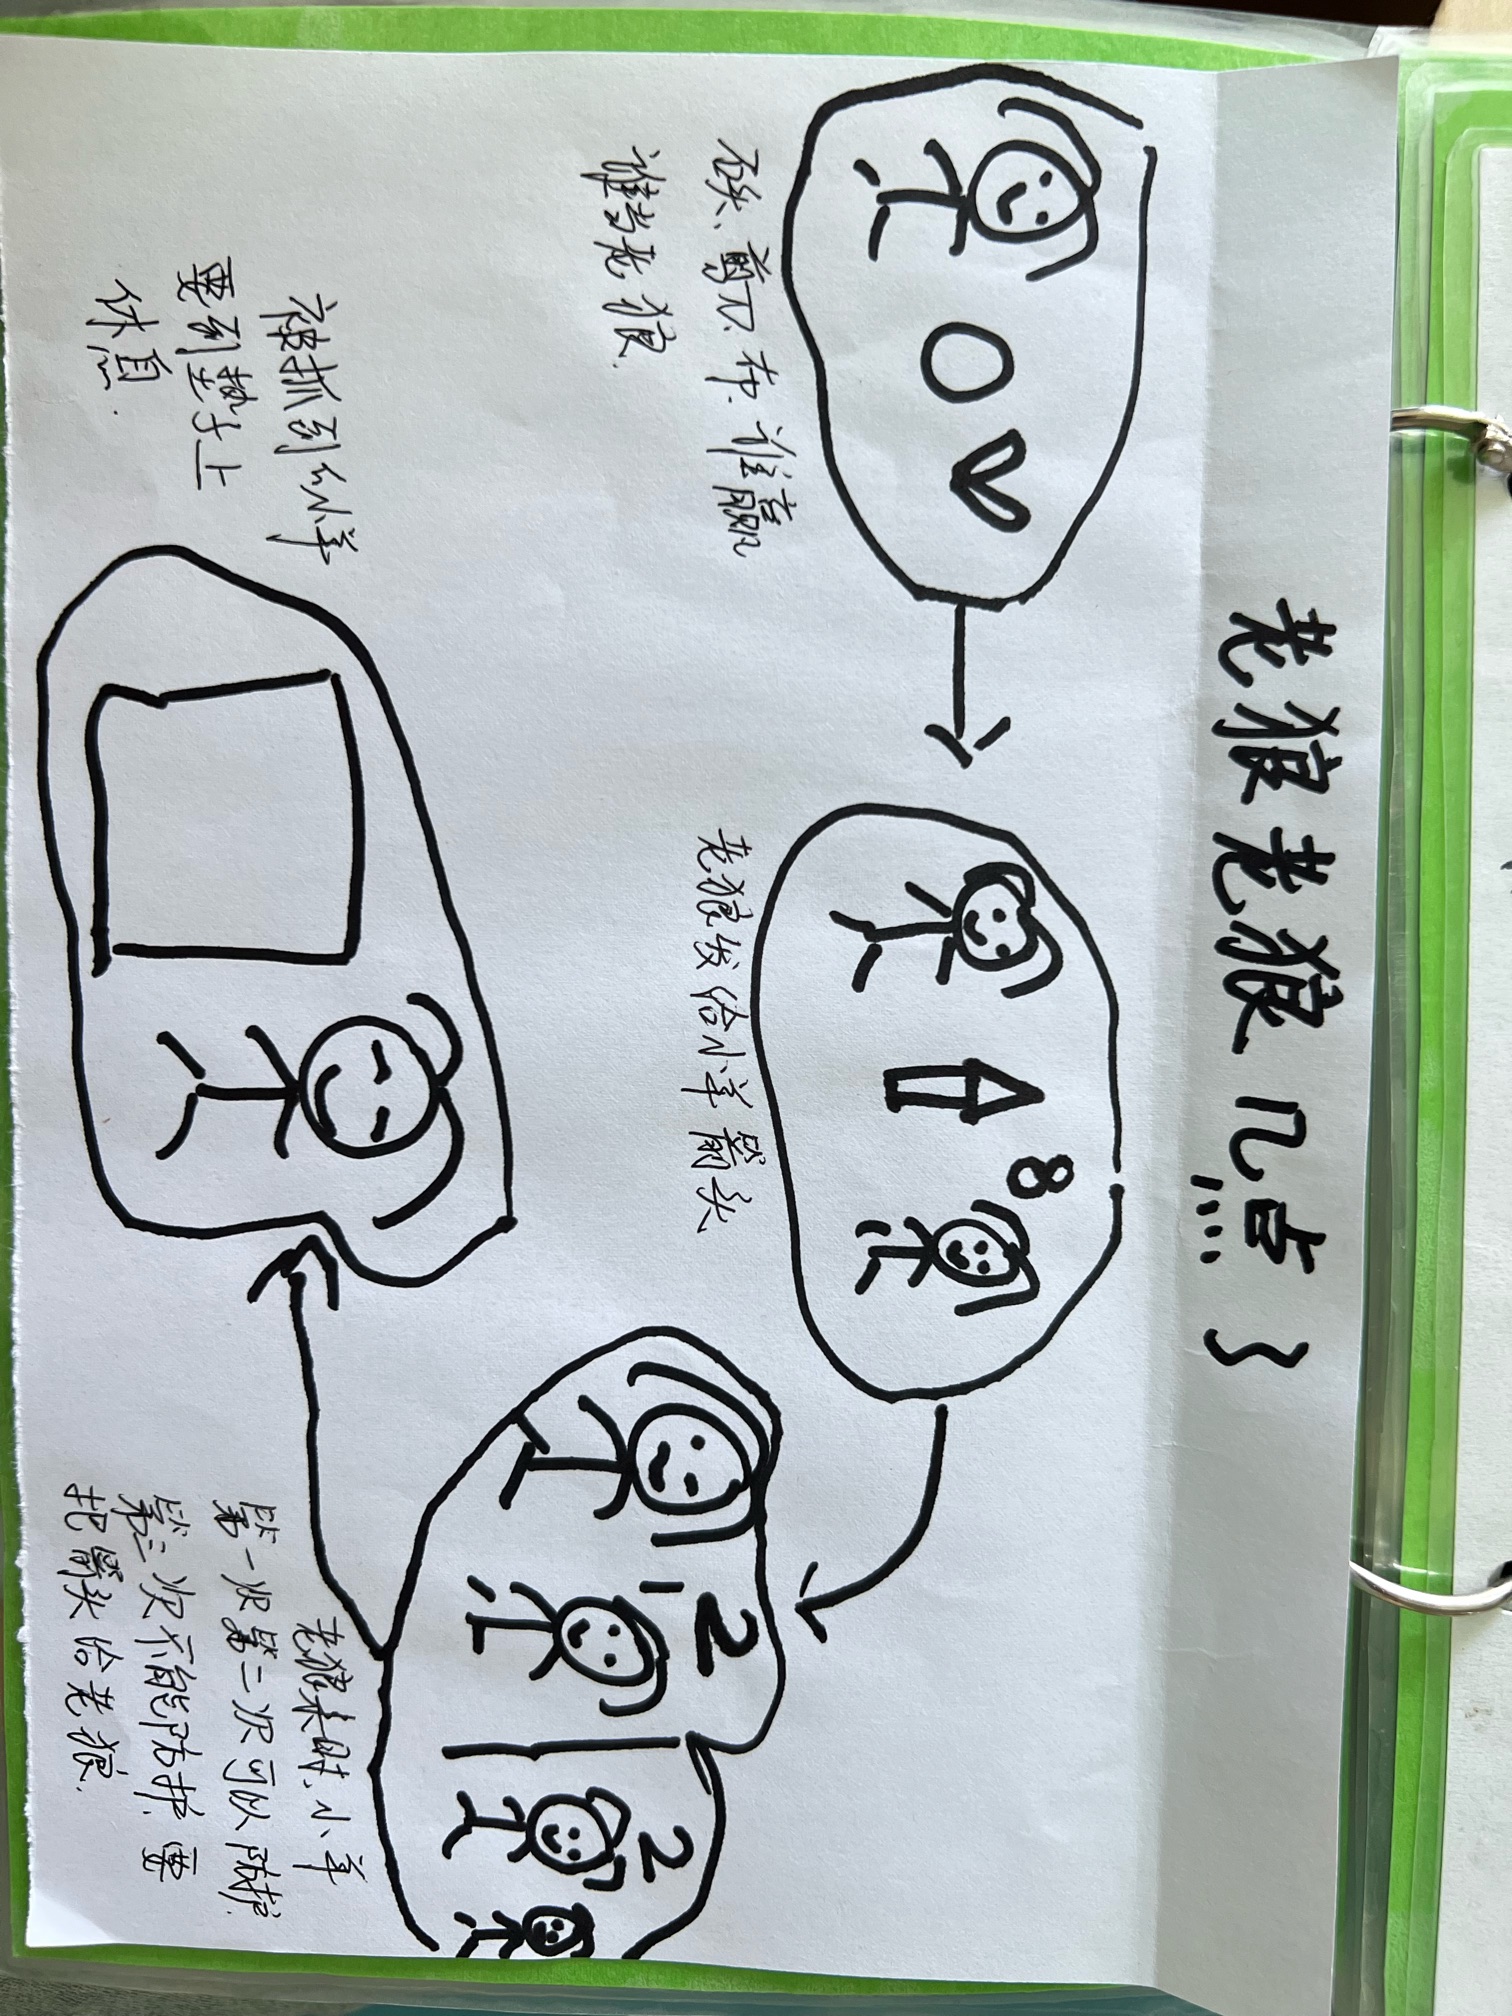 老狼老狼几点了
石头、剪刀、布、谁赢
谁当老狼.
O
老狼发给小羊箭头
8
1 2
2
老狼来时,小羊
第一次第二次可以防护.
第三次不能防护.要
把箭头给老狼.
被抓到的小羊
要到垫子上
休息.